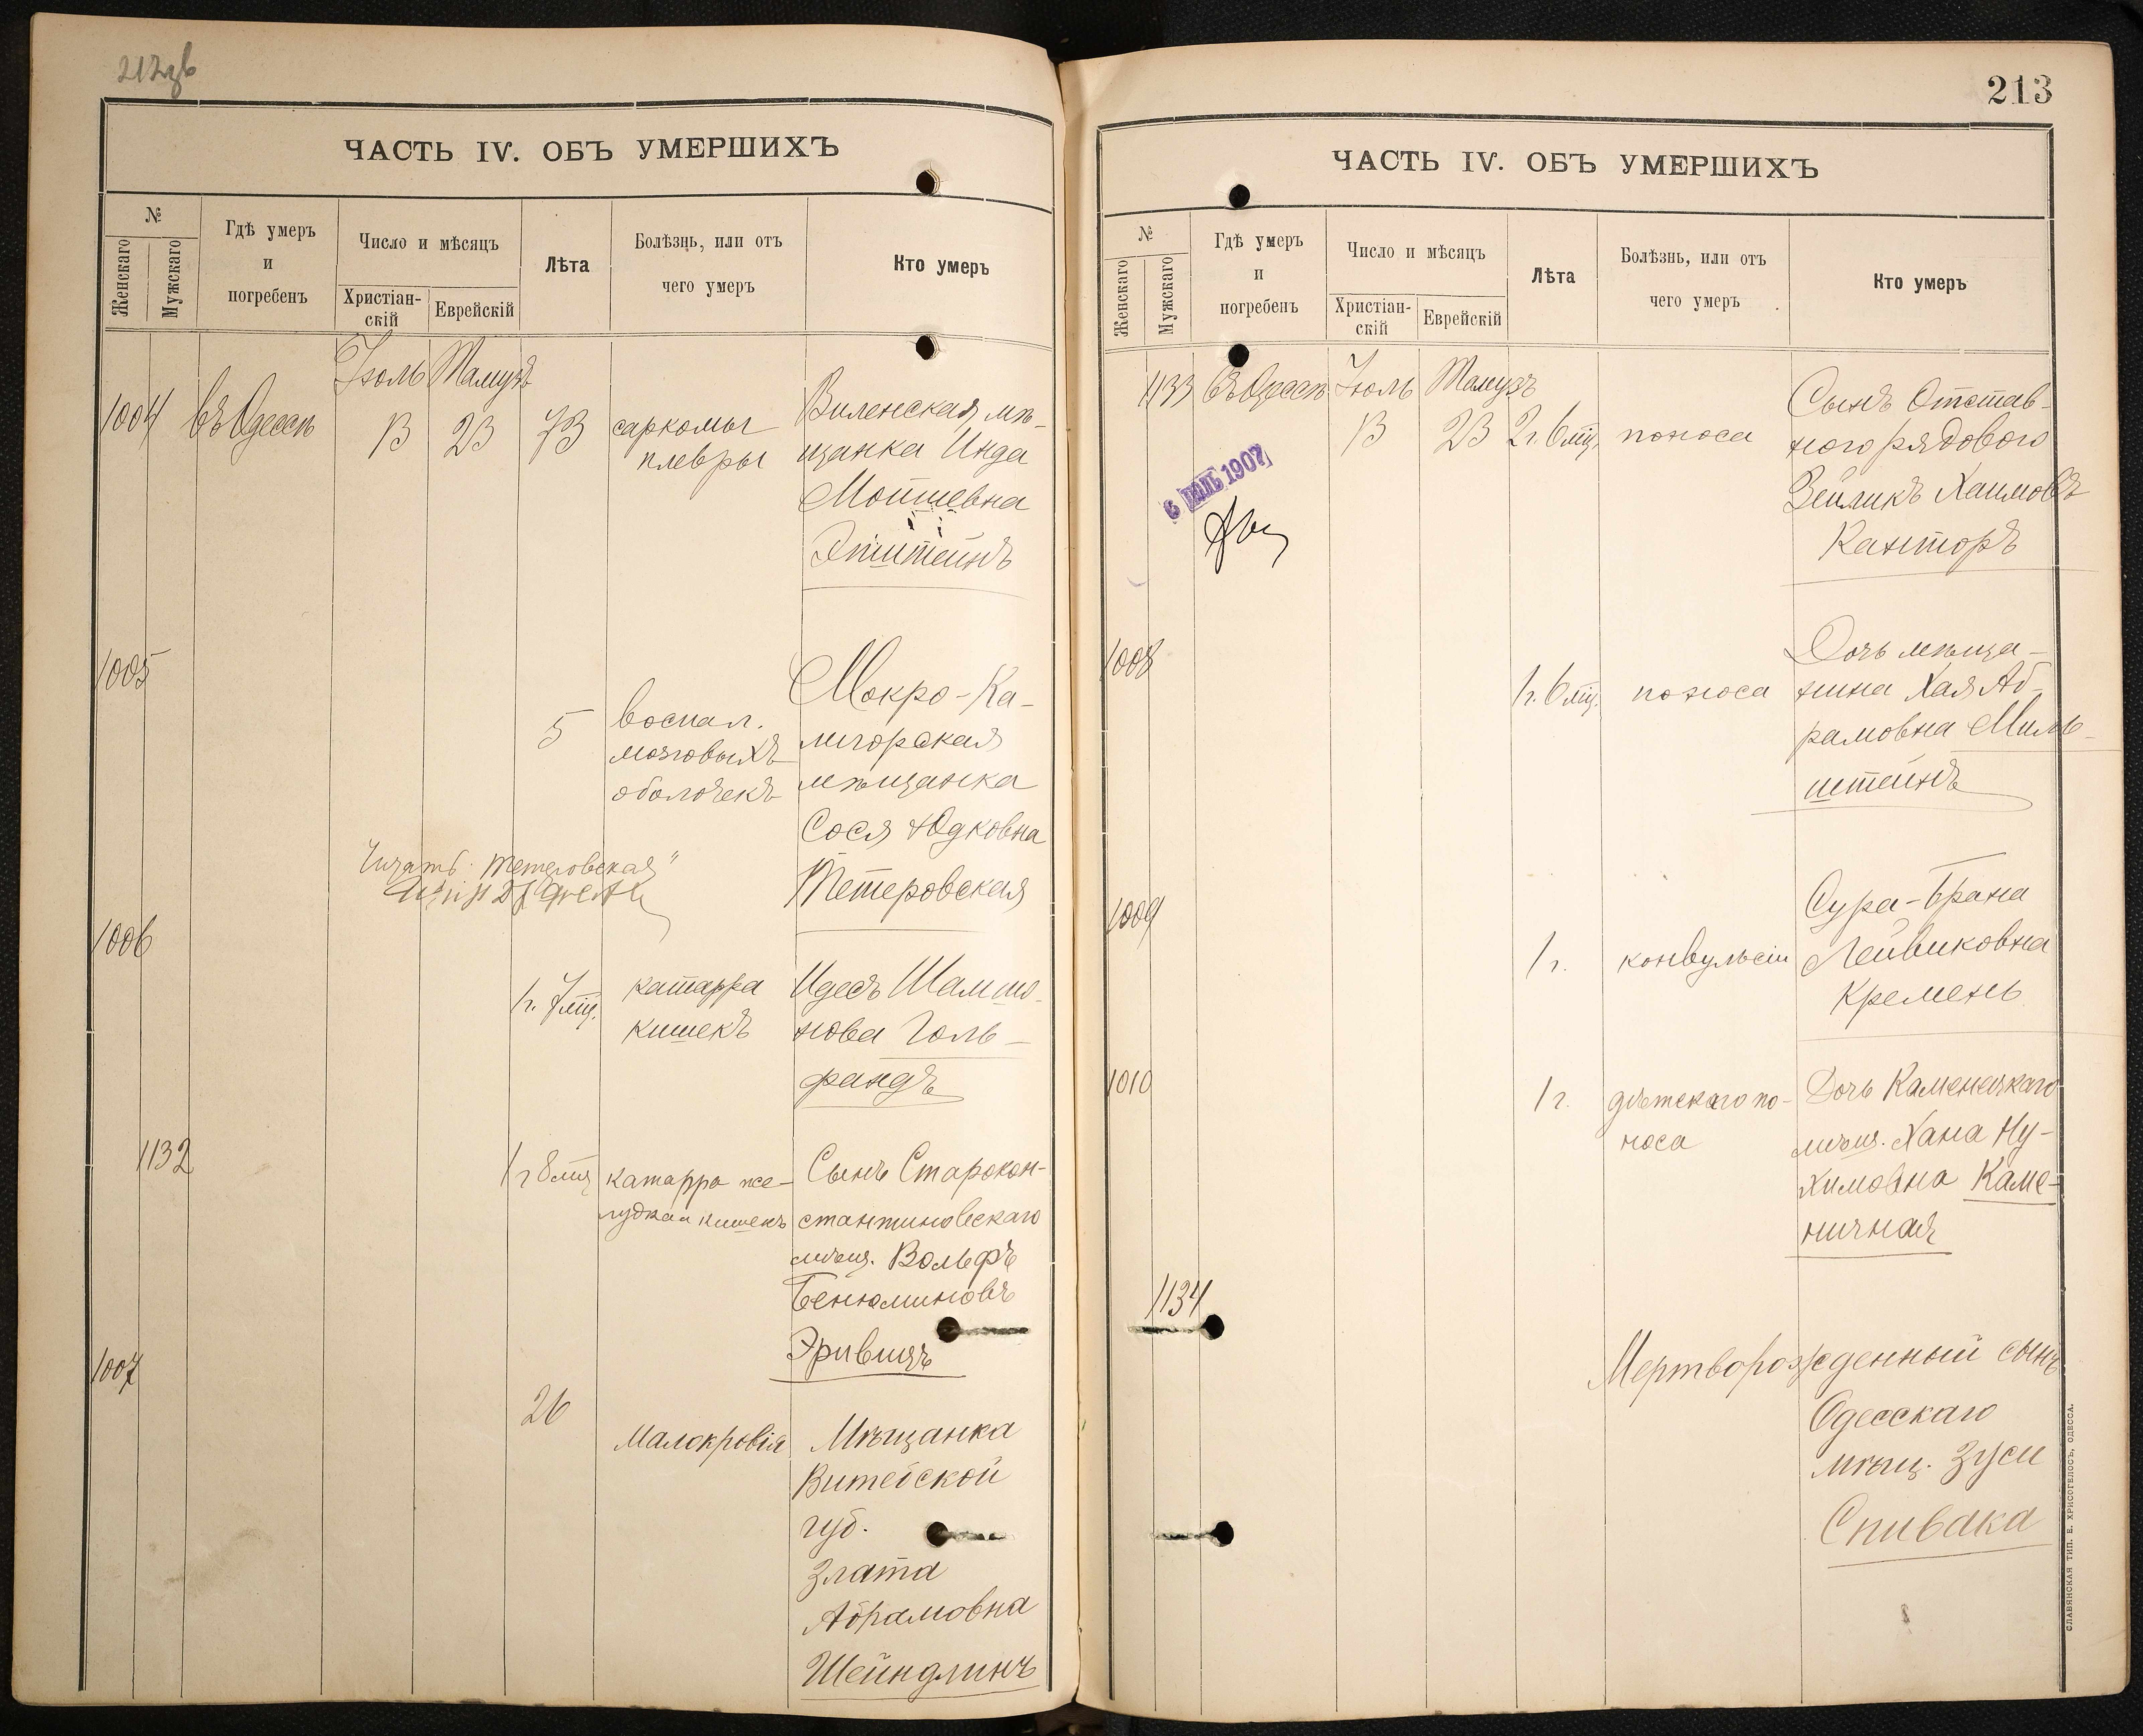 ЧАСТЬ IV. ОБЪ УМЕРШИХЪ
№
Женскаго
Мужскаго
Гдѣ умеръ
и
погребенъ
Число и мѣсяцъ
Христіан-
скій
Еврейскій
Лѣта
Болѣзнь, или отъ
чего умеръ
Кто умеръ
Іюль Тамузъ
1004 въ Одессѣ 13 23 73 саркомы
плевры
Виленская мѣ-
щанка Инда
Мошевна
Эпштейнъ
1005
5 воспал.
мозговыхъ
оболочекъ
Мокро-Ка-
лигорская
мѣщанка
Сося Юдковна
Тетеровская
Читать: „Тетеровская"
1006
1 г. 7 мѣц. катарра
кишекъ
Идесъ Шамшо-
нова Голь-
фандъ
1132
1 г 8 мѣц катарра же-
лудка и кишекъ
Сынъ Старокон-
стантиновскаго
мѣщ. Вольфъ
Бенюминовъ
1007
26
Малокровія
Мѣщанка
Витебской
губ.
Злата
Абрамовна
Шейндлинъ
213
ЧАСТЬ IV. ОБЪ УМЕРШИХЪ
№
Женскаго
Мужскаго
Гдѣ умеръ
и
погребенъ
Число и мѣсяцъ
Христіан-
скій
Еврейскій
Лѣта
Болѣзнь, или отъ
чего умеръ
Кто умеръ
1133 въ Одессѣ Іюль Тамузъ
13 23 2 г. 6 мѣц. поноса
Сынъ Отстав-
ного рядового
Зейликъ Хаимовъ
Канторъ
6 ІЮЛ 1907
1008
1 г. 6 мѣц. поноса
Дочь мѣща-
нина Хая Аб-
рамовна Миль-
штейнъ
1009
1 г. конвульсіи
Сура-Брана
Лейвиковна
Кремень
1010
1 г. дѣтскаго по-
носа
Дочь Каменецкаго
мѣщ. Хана Ну-
химовна Каме-
ничная
1134
Мертворожденный сынъ
Одесскаго
мѣщ. Зуси
Спивака
СЛАВЯНСКАЯ ТИП. Е. ХРИСОГЕЛОСЪ, ОДЕССА.